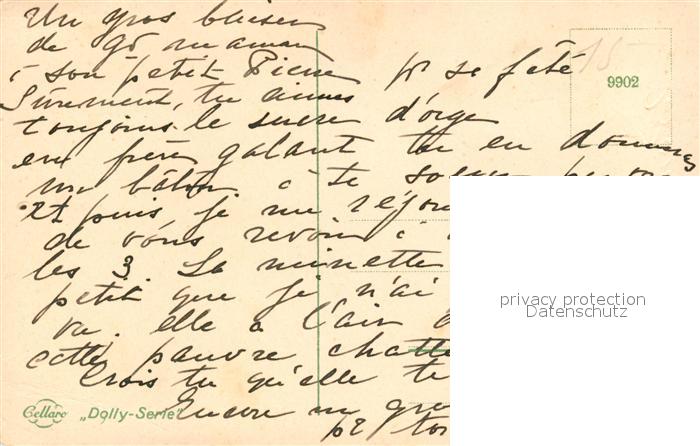 Un gros baiser
de gd maman
à son petit Pierre pr sa fête
Sûrement, tu aimes
toujours le sucre d'orge
en frère galant tu en donneras
un bâton à ta soeur
et puis je me réjou
de vous revoir
les 3. La minette
petit que je n'ai
vu. elle a l'air
cette pauvre chatte
Crois tu qu'elle te
Encore un gros
pr toi
9902
15
Cellaro „Dolly-Serie"
privacy protection
Datenschutz